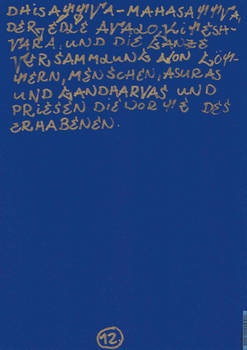 DHISATTVA-MAHASATTVA,
DER EDLE AVALOKITESH-
VARA, UND DIE GANZE
VERSAMMLUNG VON GÖT-
TERN, MENSCHEN, ASURAS
UND GANDHARVAS UND
PRIESEN DIE WORTE DES
ERHABENEN.
12.